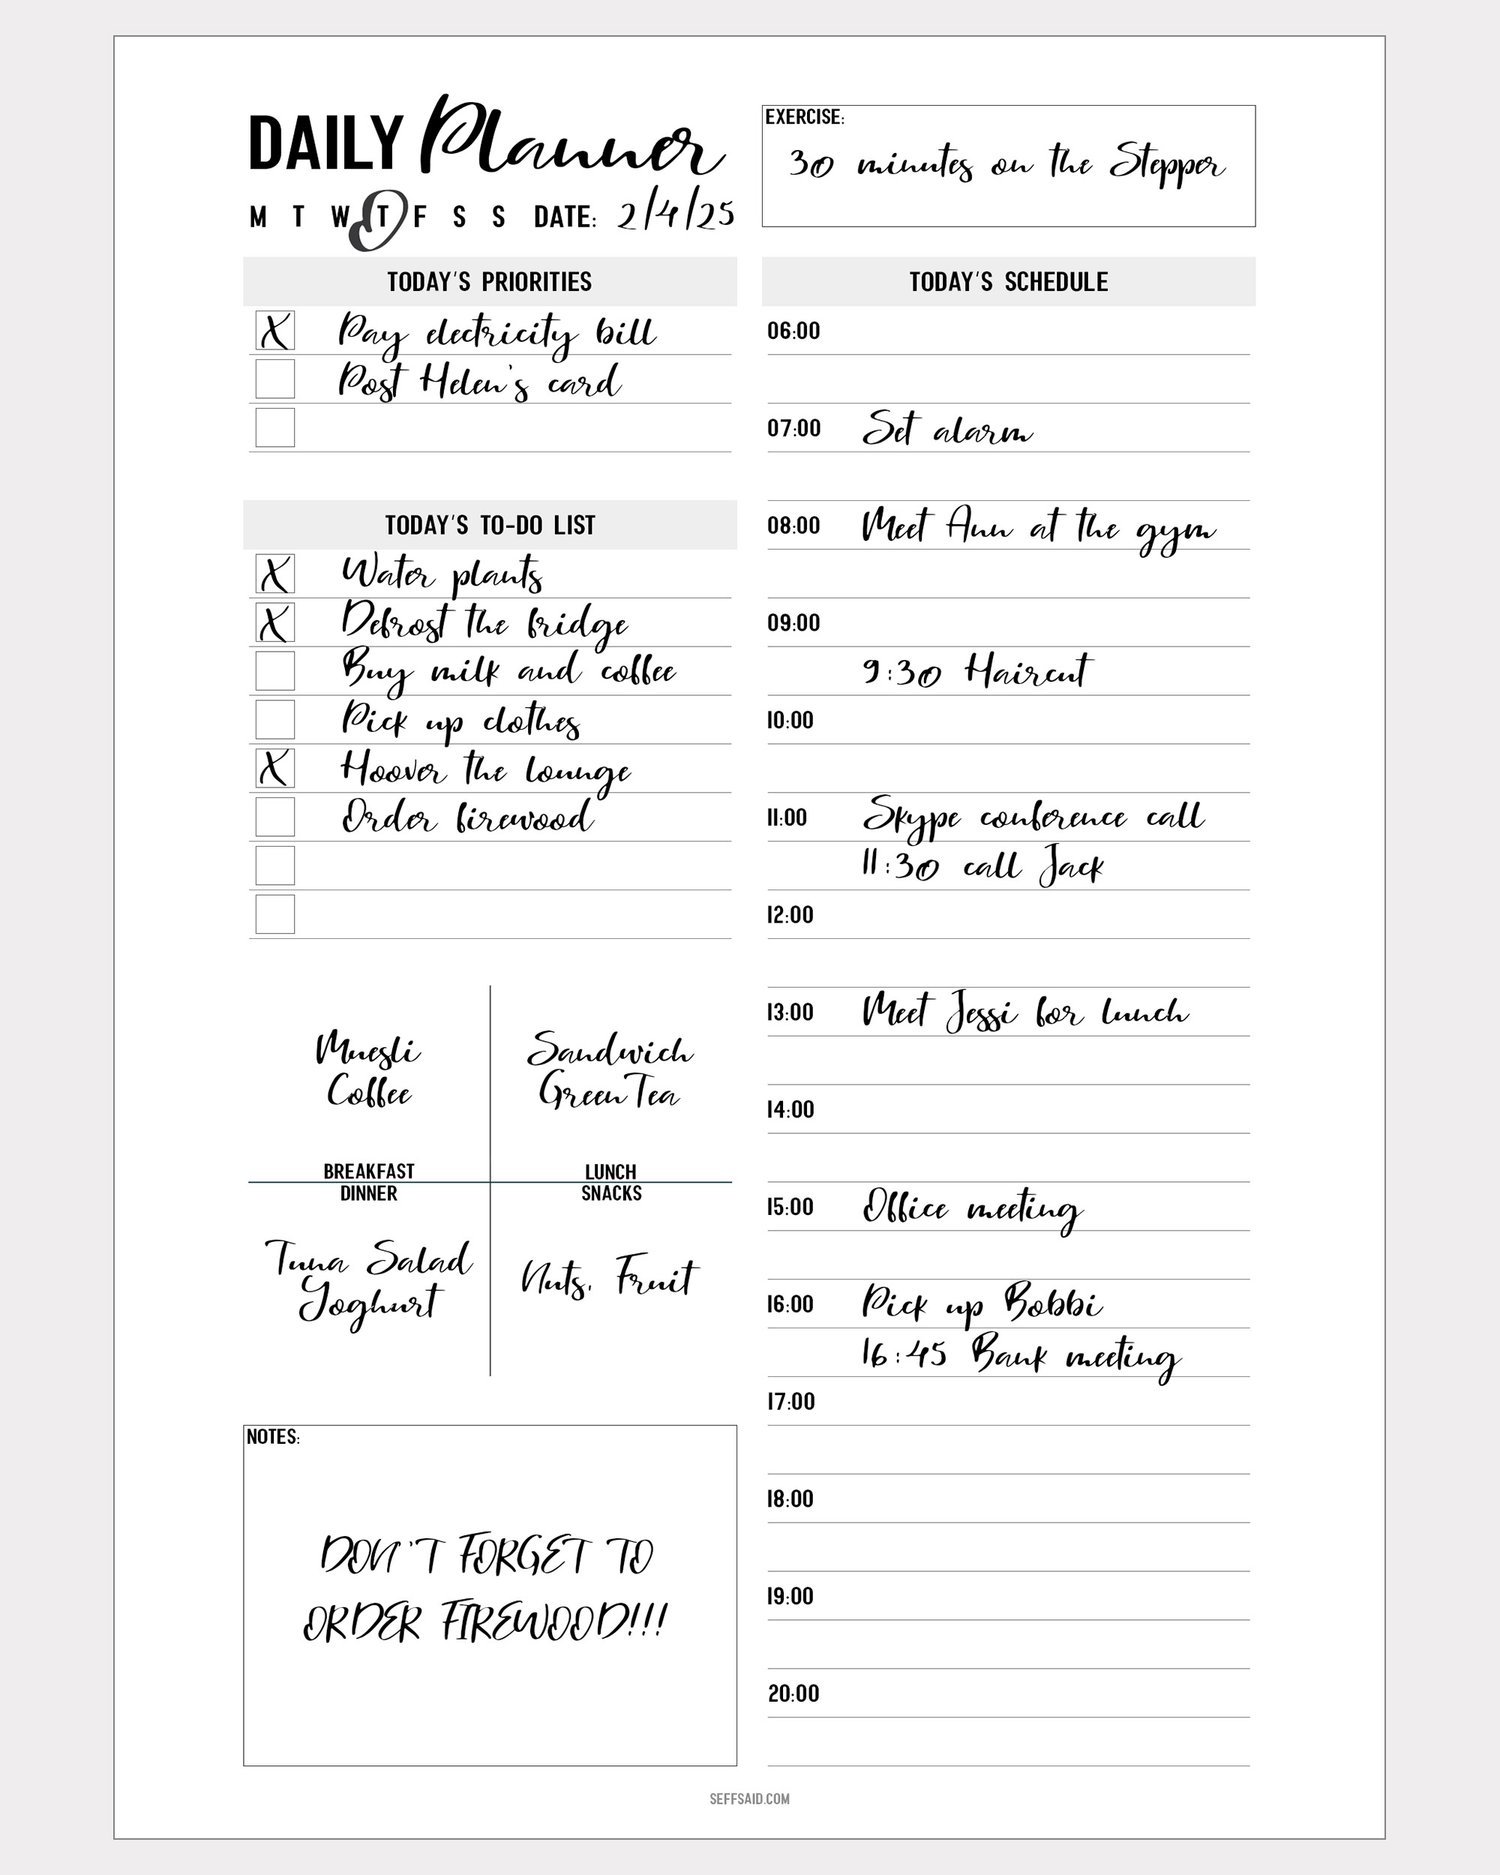 DAILY Planner
M T W T F S S DATE: 2/4/25
EXERCISE:
30 minutes on the Stepper
TODAY'S PRIORITIES
X Pay electricity bill
Post Helen's card
TODAY'S TO-DO LIST
X Water plants
X Defrost the fridge
Buy milk and coffee
Pick up clothes
X Hoover the lounge
Order firewood
Muesli
Coffee
BREAKFAST
Sandwich
Green Tea
LUNCH
DINNER
Tuna Salad
Yoghurt
SNACKS
Nuts, Fruit
NOTES:
DON'T FORGET TO
ORDER FIREWOOD!!!
TODAY'S SCHEDULE
06:00
07:00 Set alarm
08:00 Meet Ann at the gym
09:00
9:30 Haircut
10:00
11:00 Skype conference call
11:30 call Jack
12:00
13:00 Meet Jessi for lunch
14:00
15:00 Office meeting
16:00 Pick up Bobbi
16:45 Bank meeting
17:00
18:00
19:00
20:00
SEFFSAID.COM